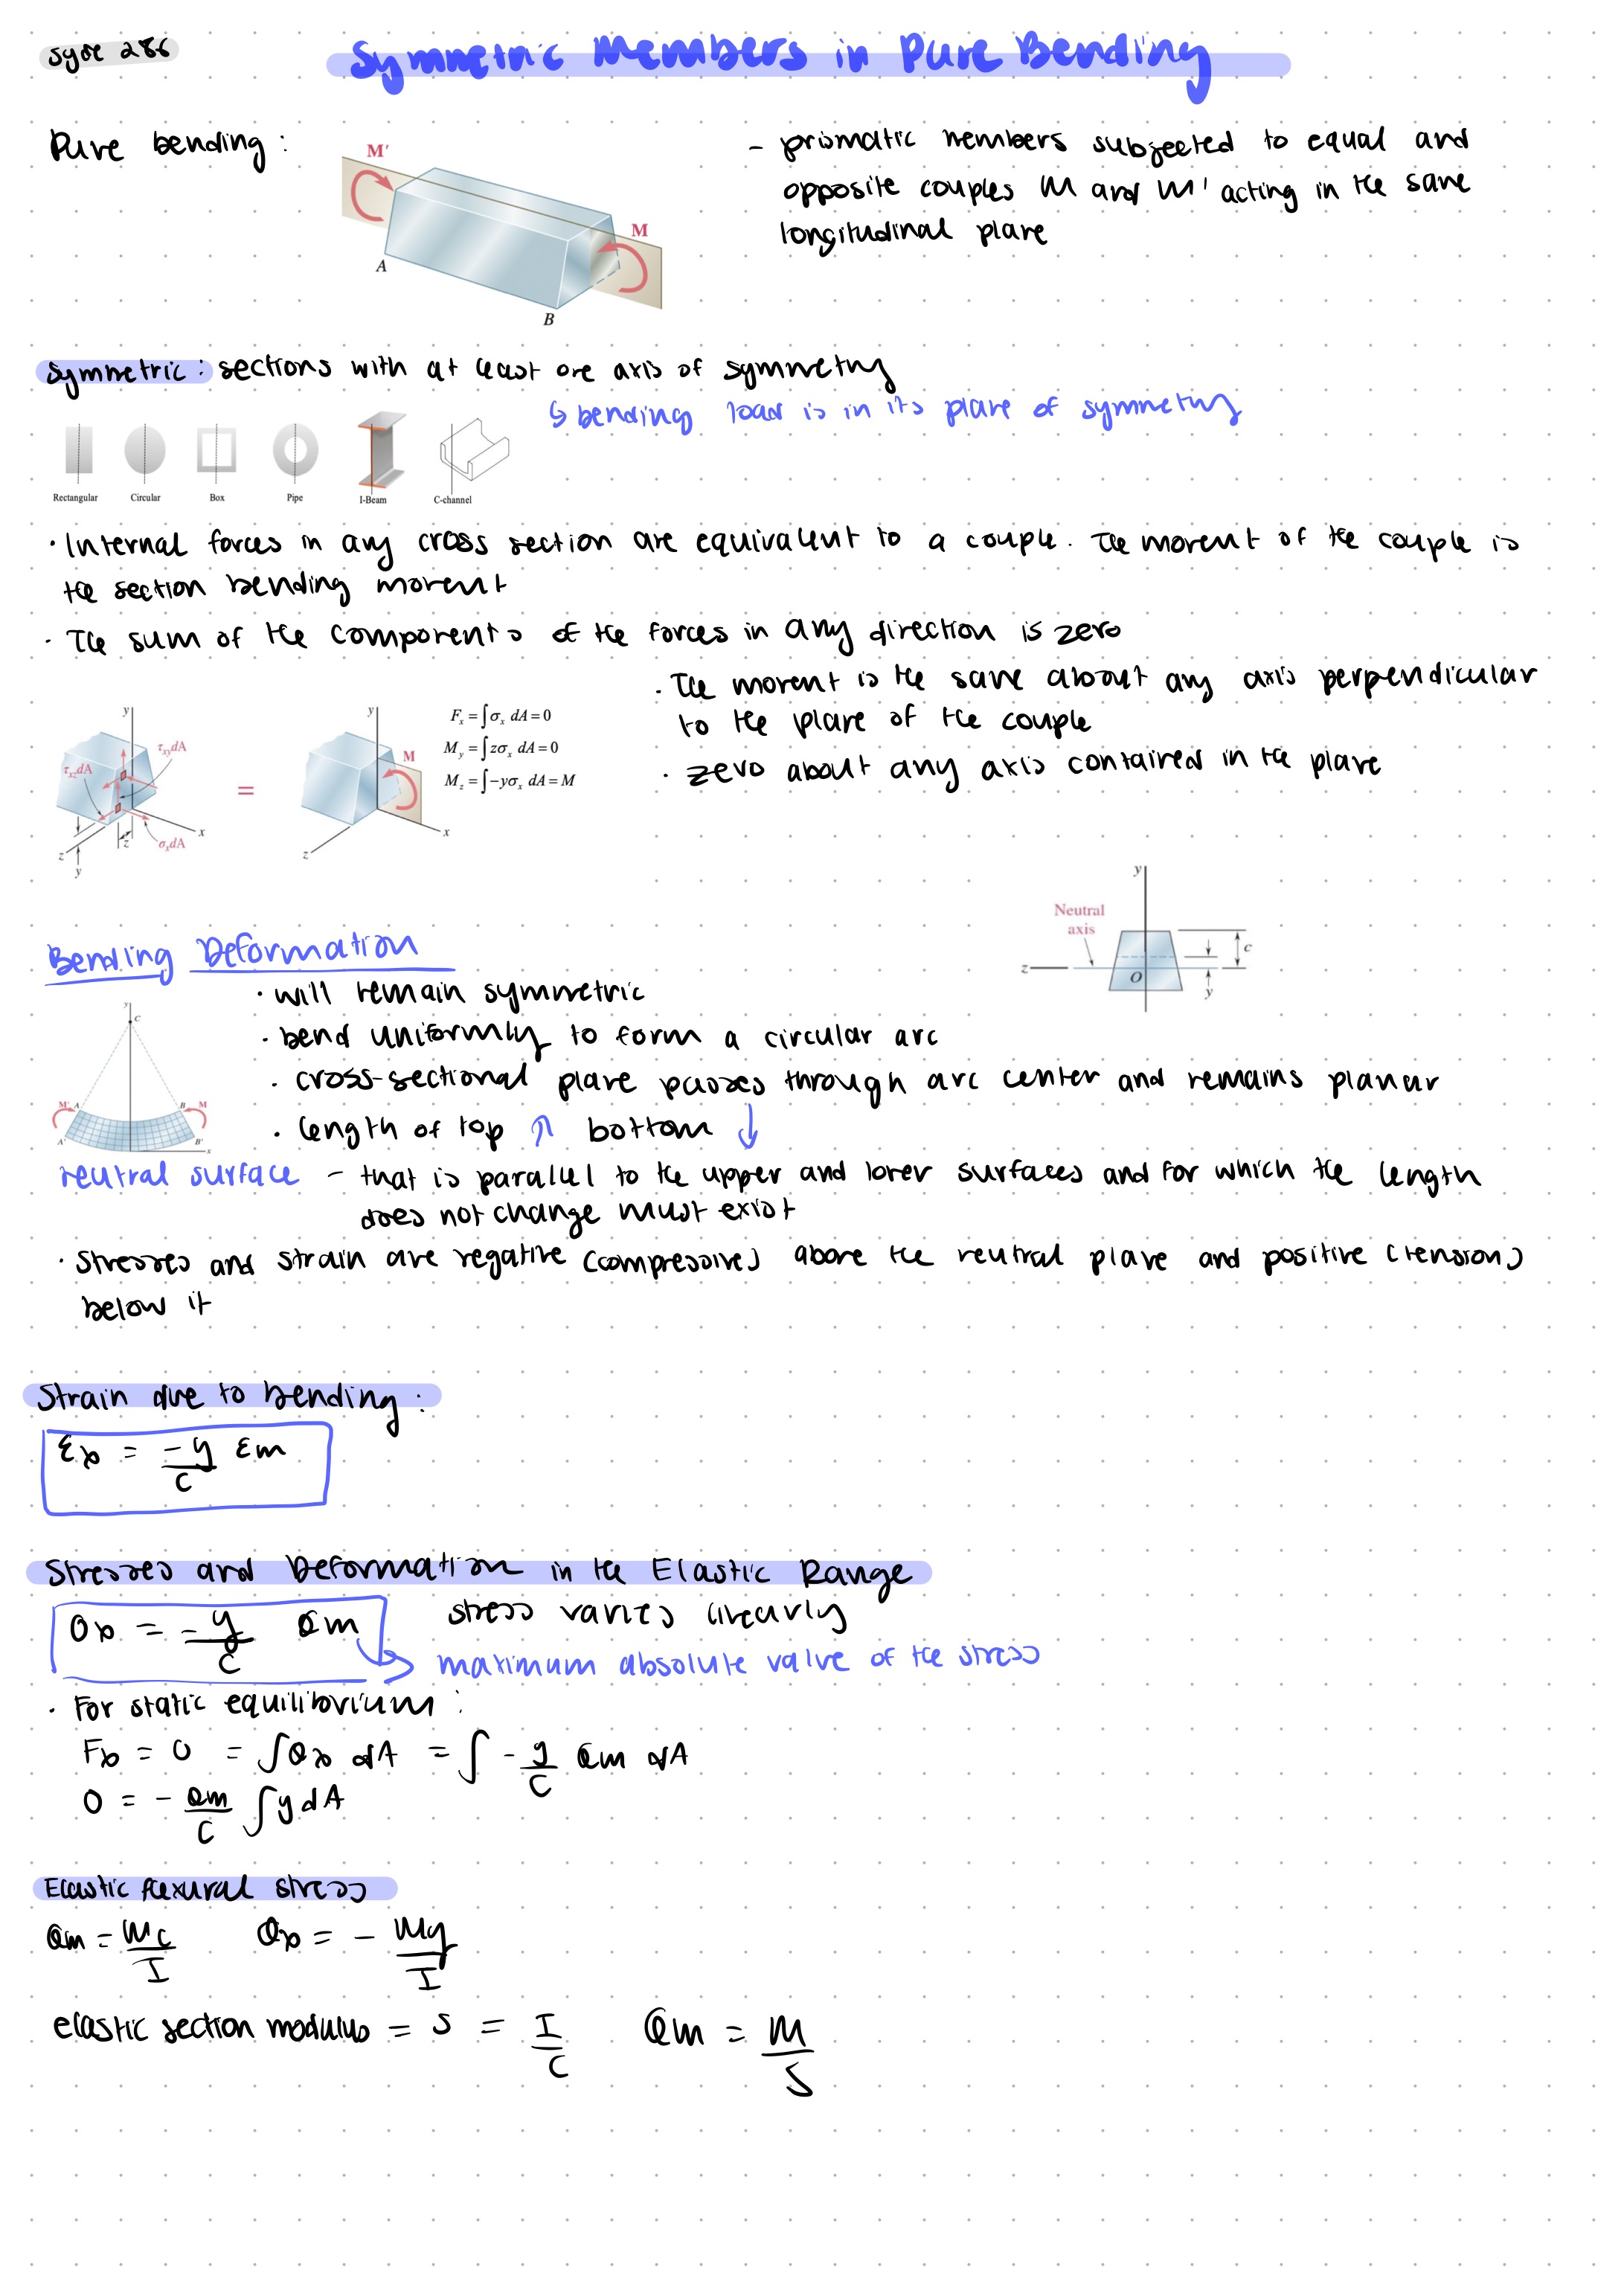 syde 286
Symmetric Members in Pure Bending
Pure bending :
M'
M
A
B
- prismatic members subjected to equal and
opposite couples M and M' acting in the same
longitudinal plane
symmetric : sections with at least one axis of symmetry
↳ bending load is in its plane of symmetry
Rectangular Circular Box Pipe I-Beam C-channel
· Internal forces in any cross section are equivalent to a couple. The moment of the couple is
the section bending moment
· The sum of the components of the forces in any direction is zero
· The moment is the same about any axis perpendicular
to the plane of the couple
· zero about any axis contained in the plane
y
τxydA
τxzdA
σxdA
x
z
z
y
=
y
M
x
z
Fx = ∫σx dA = 0
My = ∫zσx dA = 0
Mz = ∫-yσx dA = M
y
Neutral
axis
c
z
O
y
Bending Deformation
y
C
M' A B M
A' B'
x
· will remain symmetric
· bend uniformly to form a circular arc
· cross-sectional plane passes through arc center and remains planar
· length of top ↑ bottom ↓
neutral surface - that is parallel to the upper and lower surfaces and for which the length
does not change must exist
· Stresses and strain are negative (compressive) above the neutral plane and positive (tension)
below it
Strain due to bending :
εx = -y/c εm
Stresses and Deformation in the Elastic Range
σx = -y/c σm
stress varies linearly
maximum absolute value of the stress
· For static equilibrium :
Fx = 0 = ∫σx dA = ∫ -y/c σm dA
0 = - σm/c ∫y dA
Elastic flexural stress
σm = Mc/I σx = - My/I
elastic section modulus = S = I/c σm = M/S